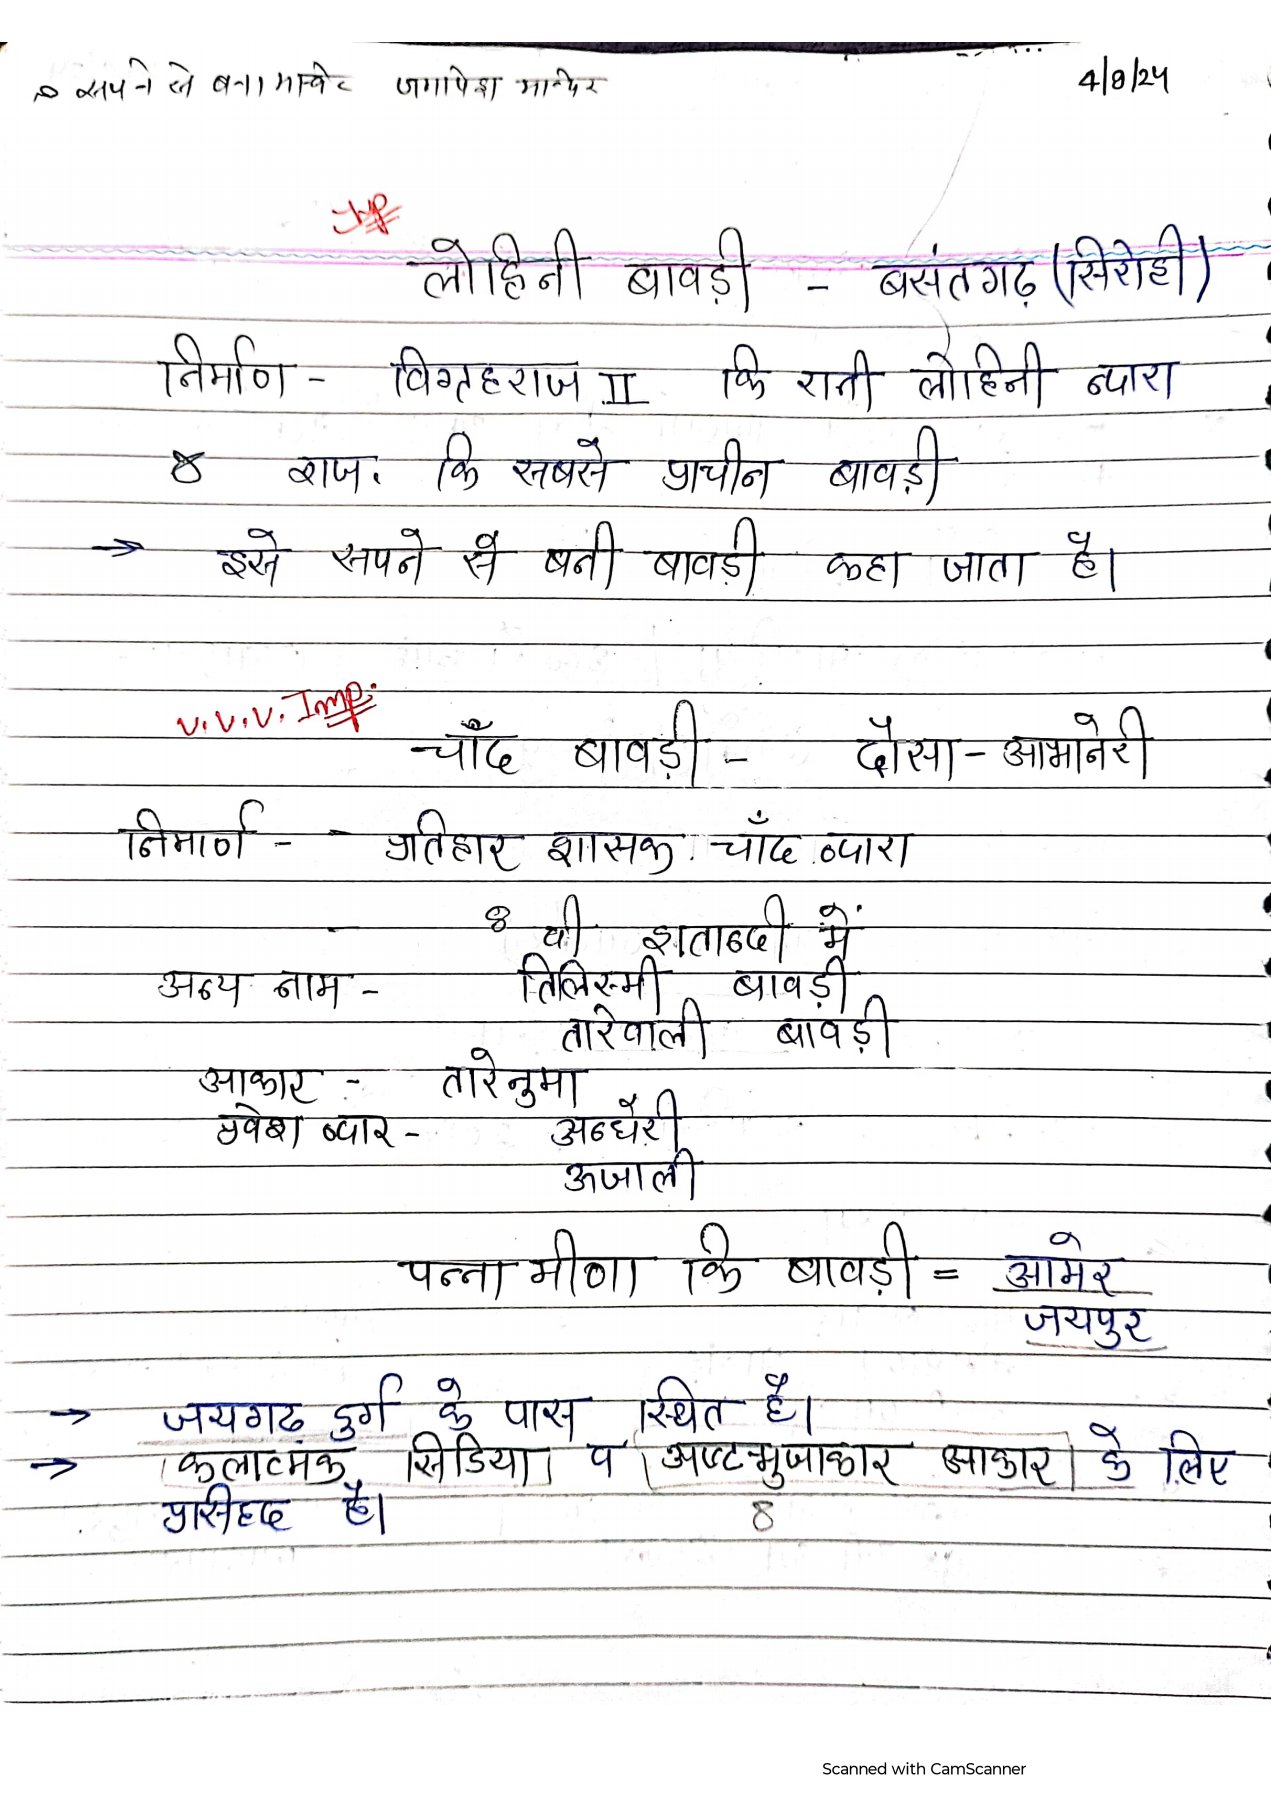 सपने से बना मन्दिर जगदीश मन्दिर 4/8/24
Imp
लोहिनी बावड़ी - बसंतगढ़ (सिरोही)
निर्माण - विग्रहराज II कि रानी लोहिनी व्दारा
राज. कि सबसे प्राचीन बावड़ी
→ इसे सपने से बनी बावड़ी कहा जाता है।
V.V.V. Imp.
चाँद बावड़ी - दौसा - आभानेरी
निमार्ण - प्रतिहार शासक चाँद व्दारा
- 8 वी शताब्दी में
अन्य नाम - तिलिस्मी बावड़ी
तारेवाली बावड़ी
आकार - तारेनुमा
प्रवेश व्दार - अन्धेरी
ऊजाली
पन्ना मीणा कि बावड़ी = आमेर
जयपुर
→ जयगढ दुर्ग के पास स्थित है।
→ कलात्मक सिडिया व अष्टभुजाकार आकार के लिए
प्रसिध्द है। 8
Scanned with CamScanner